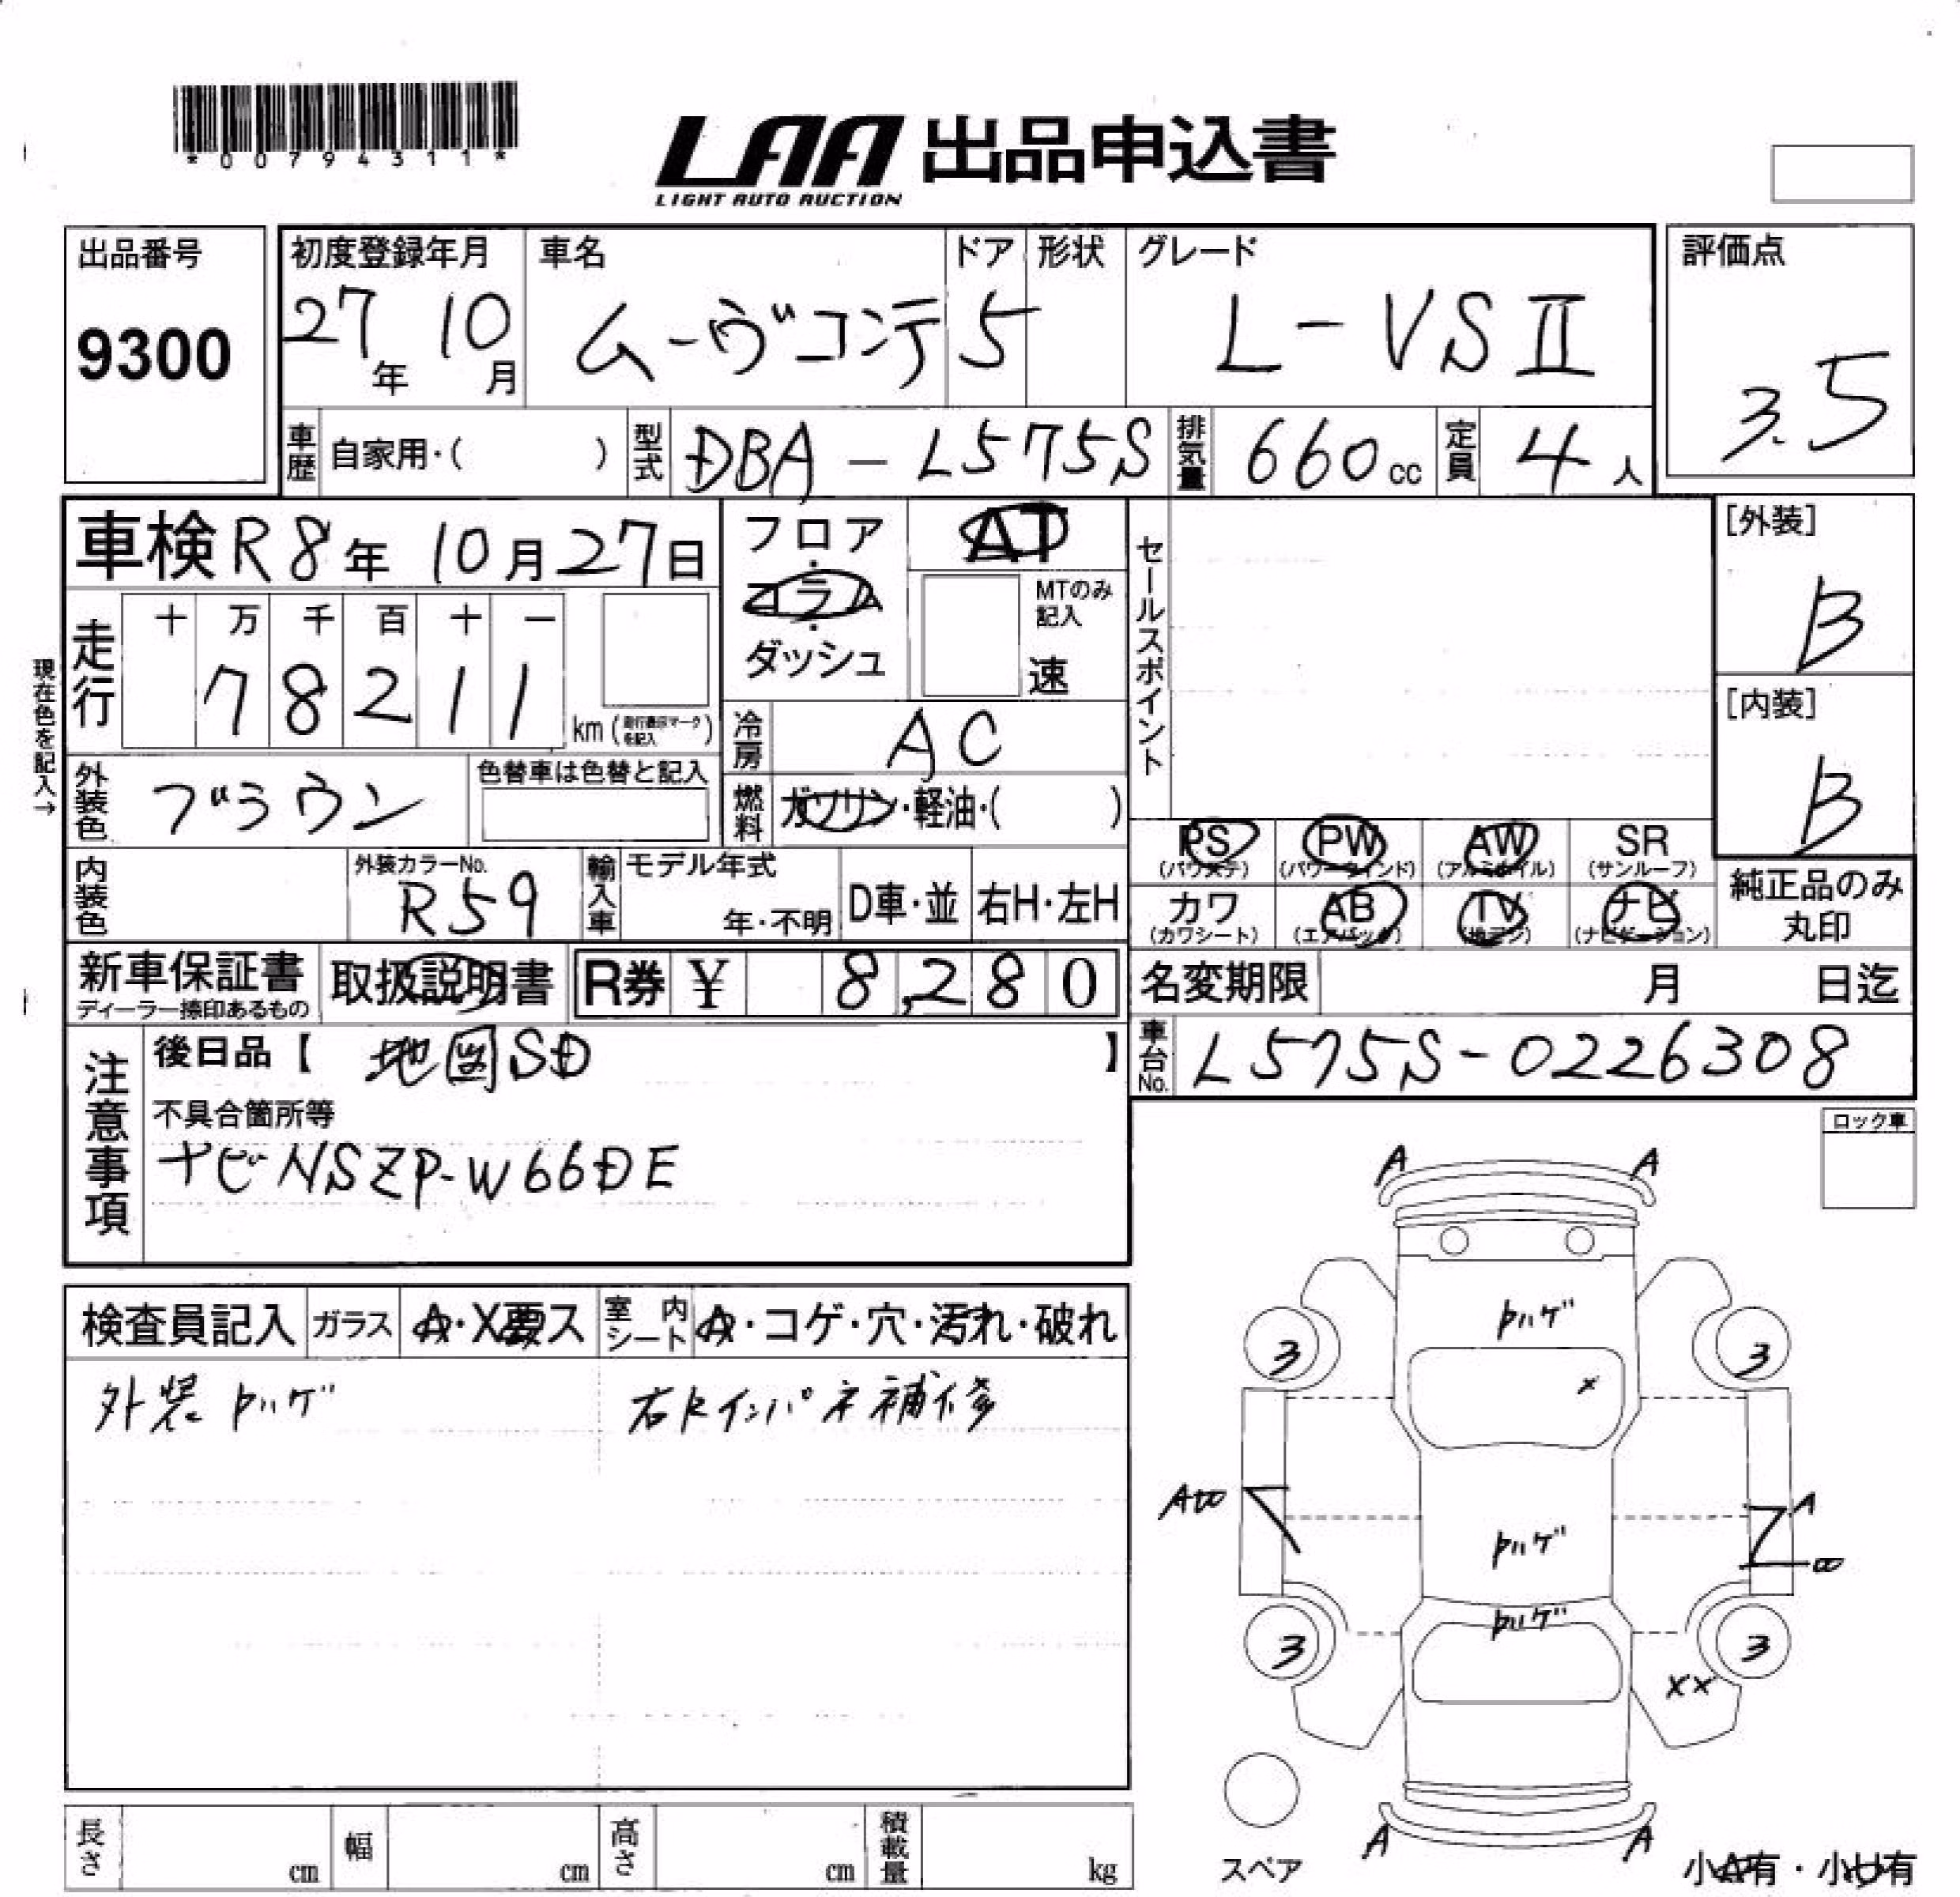 *00794311*
LAA 出品申込書
LIGHT AUTO AUCTION
出品番号
9300
初度登録年月
27年 10月
車名
ムーヴコンテ
ドア
5
形状
グレード
L-VSⅡ
評価点
3.5
車歴 自家用・( )
型式 DBA-L575S
排気量 660cc
定員 4人
車検 R8年 10月27日
フロア・コラム・ダッシュ
AT
MTのみ記入
速
セールスポイント
[外装]
B
[内装]
B
現在色を記入→
走行
十 万 千 百 十 一
7 8 2 1 1
km (走行表示マークを記入)
冷房 AC
外装色 ブラウン
色替車は色替と記入
燃料 ガソリン・軽油・( )
PS (パワステ)
PW (パワーウィンド)
AW (アルミホイル)
SR (サンルーフ)
カワ (カワシート)
AB (エアバック)
TV (地デジ)
ナビ (ナビゲーション)
純正品のみ丸印
内装色
外装カラーNo.
R59
輸入車
モデル年式
年・不明
D車・並
右H・左H
新車保証書
ディーラー捺印あるもの
取扱説明書
R券 ¥ 8,280
名変期限 月 日迄
車台No. L575S-0226308
注意事項
後日品【 地図SD 】
不具合箇所等
ナビNSZP-W66DE
ロック車
検査員記入
ガラス A・X要ス
室内シート A・コゲ・穴・汚れ・破れ
外装トハゲ
右Rインパネ補修
A A
トハゲ
3 3
X
トハゲ
A
トハゲ
3 3
XX
A A
スペア
小A有・小U有
長さ cm
幅 cm
高さ cm
積載量 kg